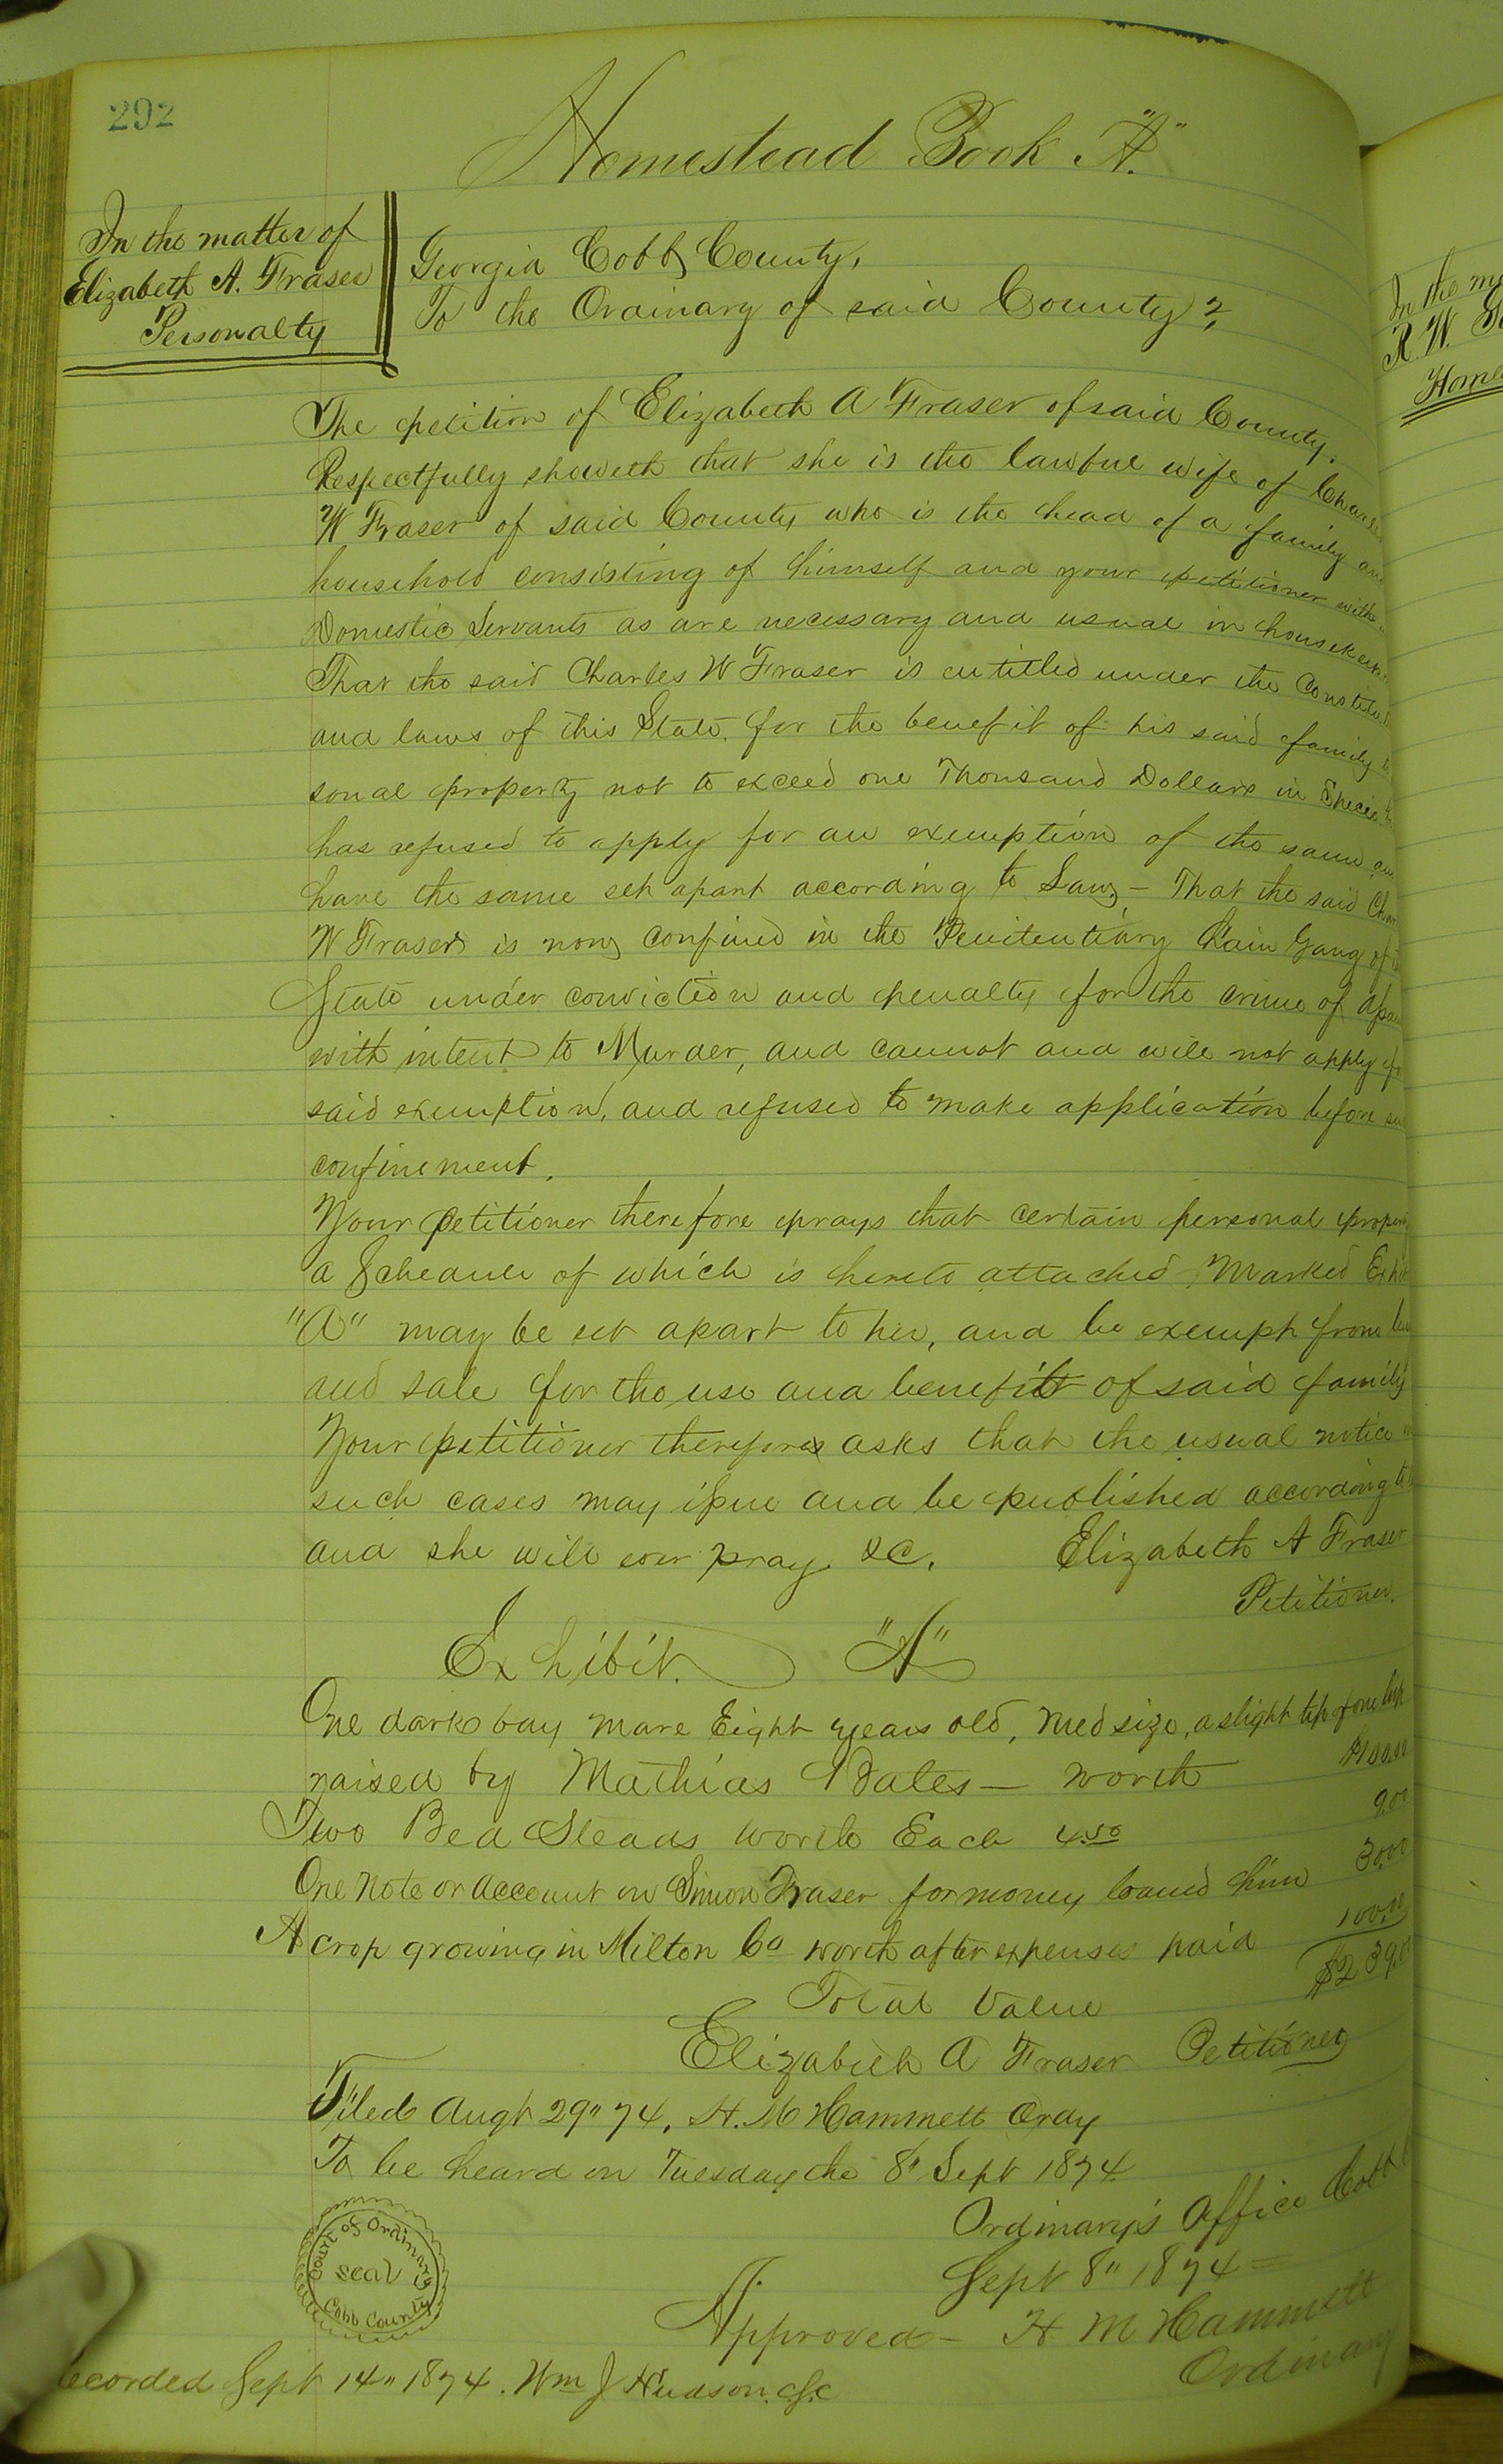 292
Homestead Book "A."
In the matter of
Elizabeth A. Fraser
Personalty
Georgia Cobb County,
To the Ordinary of said County
The petition of Elizabeth A Fraser of said County,
Respectfully showeth that she is the lawful wife of
W Fraser of said County who is the head of a family
household consisting of himself and your petitioner with
Domestic Servants as are necessary and usual in
That the said Charles W Fraser is entitled under the
and laws of this State, for the benefit of his said family
sonal property not to exceed one Thousand Dollars in Specie
has refused to apply for an exemption of the same
have the same set apart according to Law – That the said
W Fraser is now confined in the Penitentiary Chain Gang of
State under conviction and penalty for the crime of
with intent to Murder, and cannot and will not apply
said exemption, and refused to make application before
confinement.
Your petitioner therefore prays that certain personal
a Schedule of which is hereto attached Marked
"A" may be set apart to her, and be exempt from
and sale for the use and benefit of said family
Your petitioner therefore asks that the usual notice
such cases may issue and be published according
and she will ever pray &C. Elizabeth A Fraser
Petitioner.
Exhibit "A"
One dark bay mare Eight years old, Med size, a slight of one
raised by Mathias Bates — worth $100.00
Two Bed Steads worth Each 4.50 9.00
One Note or Account on Simon Fraser for money loaned him 30.00
A crop growing in Milton Co worth after expenses paid 100.00
Total Value $239.00
Elizabeth A Fraser Petitioner
Filed Augt 29" 74, H. M Hammett Ordy
To be heard on Tuesday the 8" Sept 1874
Ordinary's Office Cobb
Sept 8" 1874 =
Approved – H. M Hammett
Ordinary
Court of Ordinary
seal
Cobb County
Sept 14" 1874. Wm J Hudson.